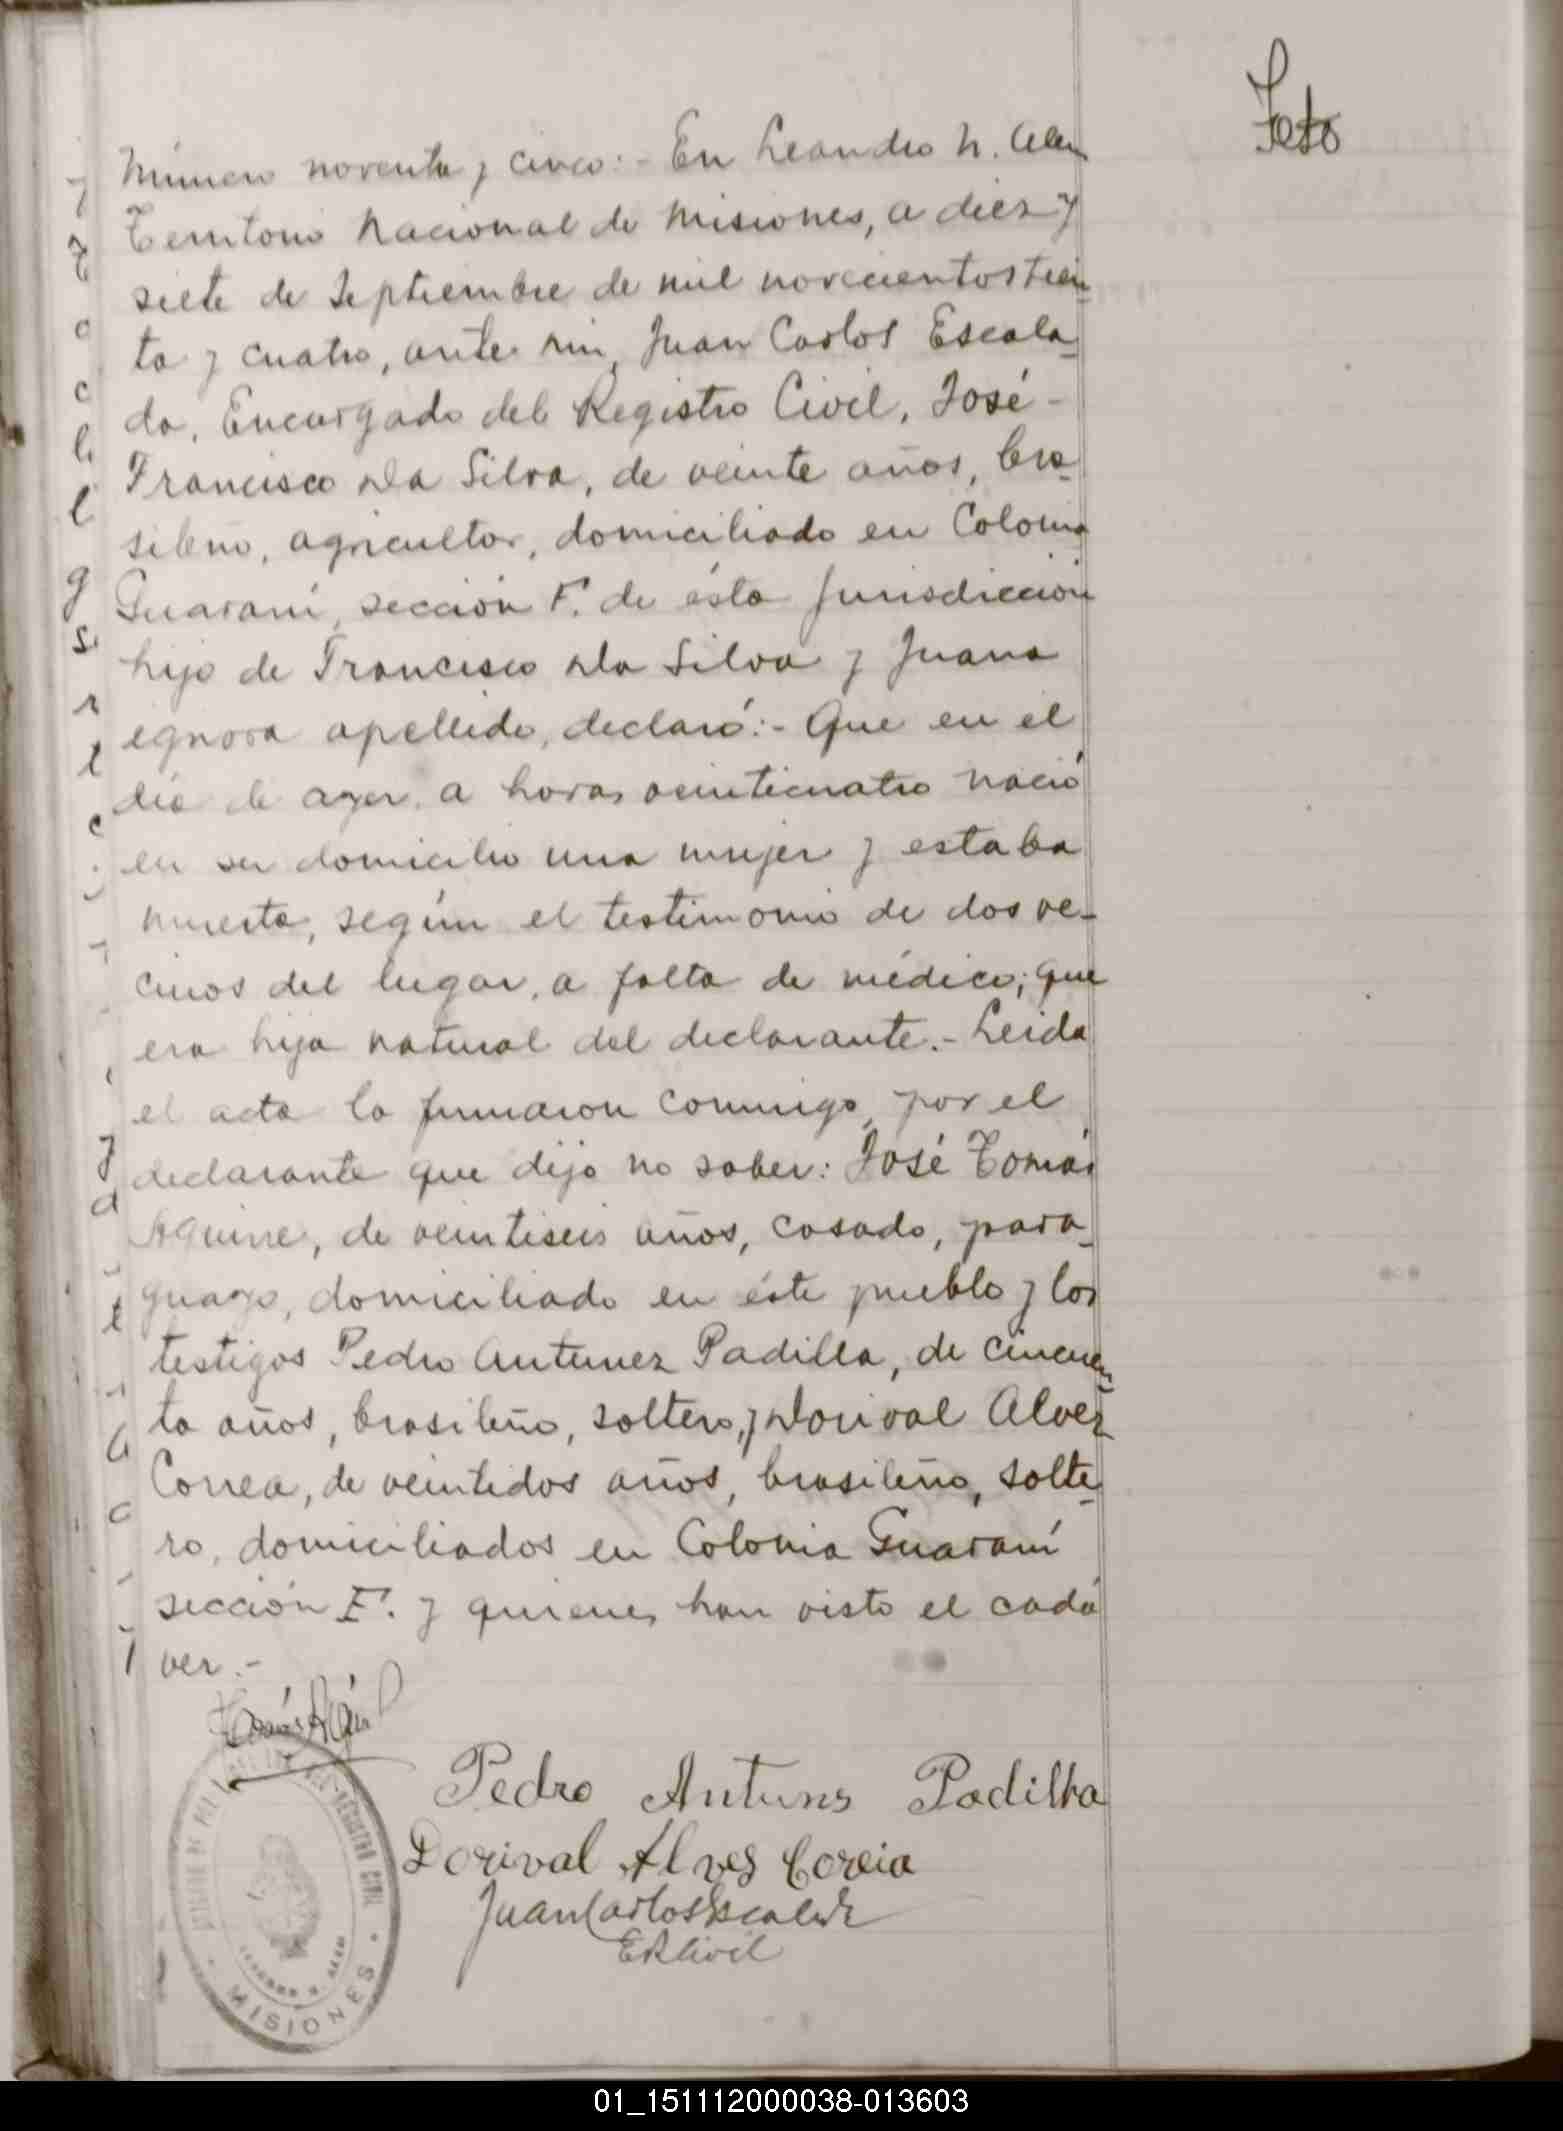 Feto
Número noventa y cinco:- En Leandro N. Alem
Territorio Nacional de Misiones, a diez y
siete de Septiembre de mil novecientos trein-
ta y cuatro, ante mi, Juan Carlos Escala-
da, Encargado del Registro Civil, José-
Francisco Da Silva, de veinte años, bra-
sileño, agricultor, domiciliado en Colonia
Guaraní, sección F. de ésta Jurisdicción
hijo de Francisco Da Silva y Juana
ignora apellido, declaró:- Que en el
día de ayer, a horas veinticuatro nació
en su domicilio una mujer y estaba
muerta, según el testimonio de dos ve-
cinos del lugar, a falta de médico; que
era hija natural del declarante.- Leida
el acta la firmaron conmigo, por el
declarante que dijo no saber: José Tomás
Aquirre, de veintiseis años, casado, para-
guayo, domiciliado en éste pueblo y los
testigos Pedro Antunez Padilla, de cincuen-
ta años, brasileño, soltero, y Dorival Alvez
Correa, de veintidos años, brasileño, solte-
ro, domiciliados en Colonia Guaraní
sección F. y quienes han visto el cadá
ver.-
Tomás
Pedro Antuns Padilha
Dorival Alves Correia
Juan Carlos Escalada
ERCivil
REGISTRO CIVIL
LEANDRO N. ALEM
MISIONES
01_151112000038-013603